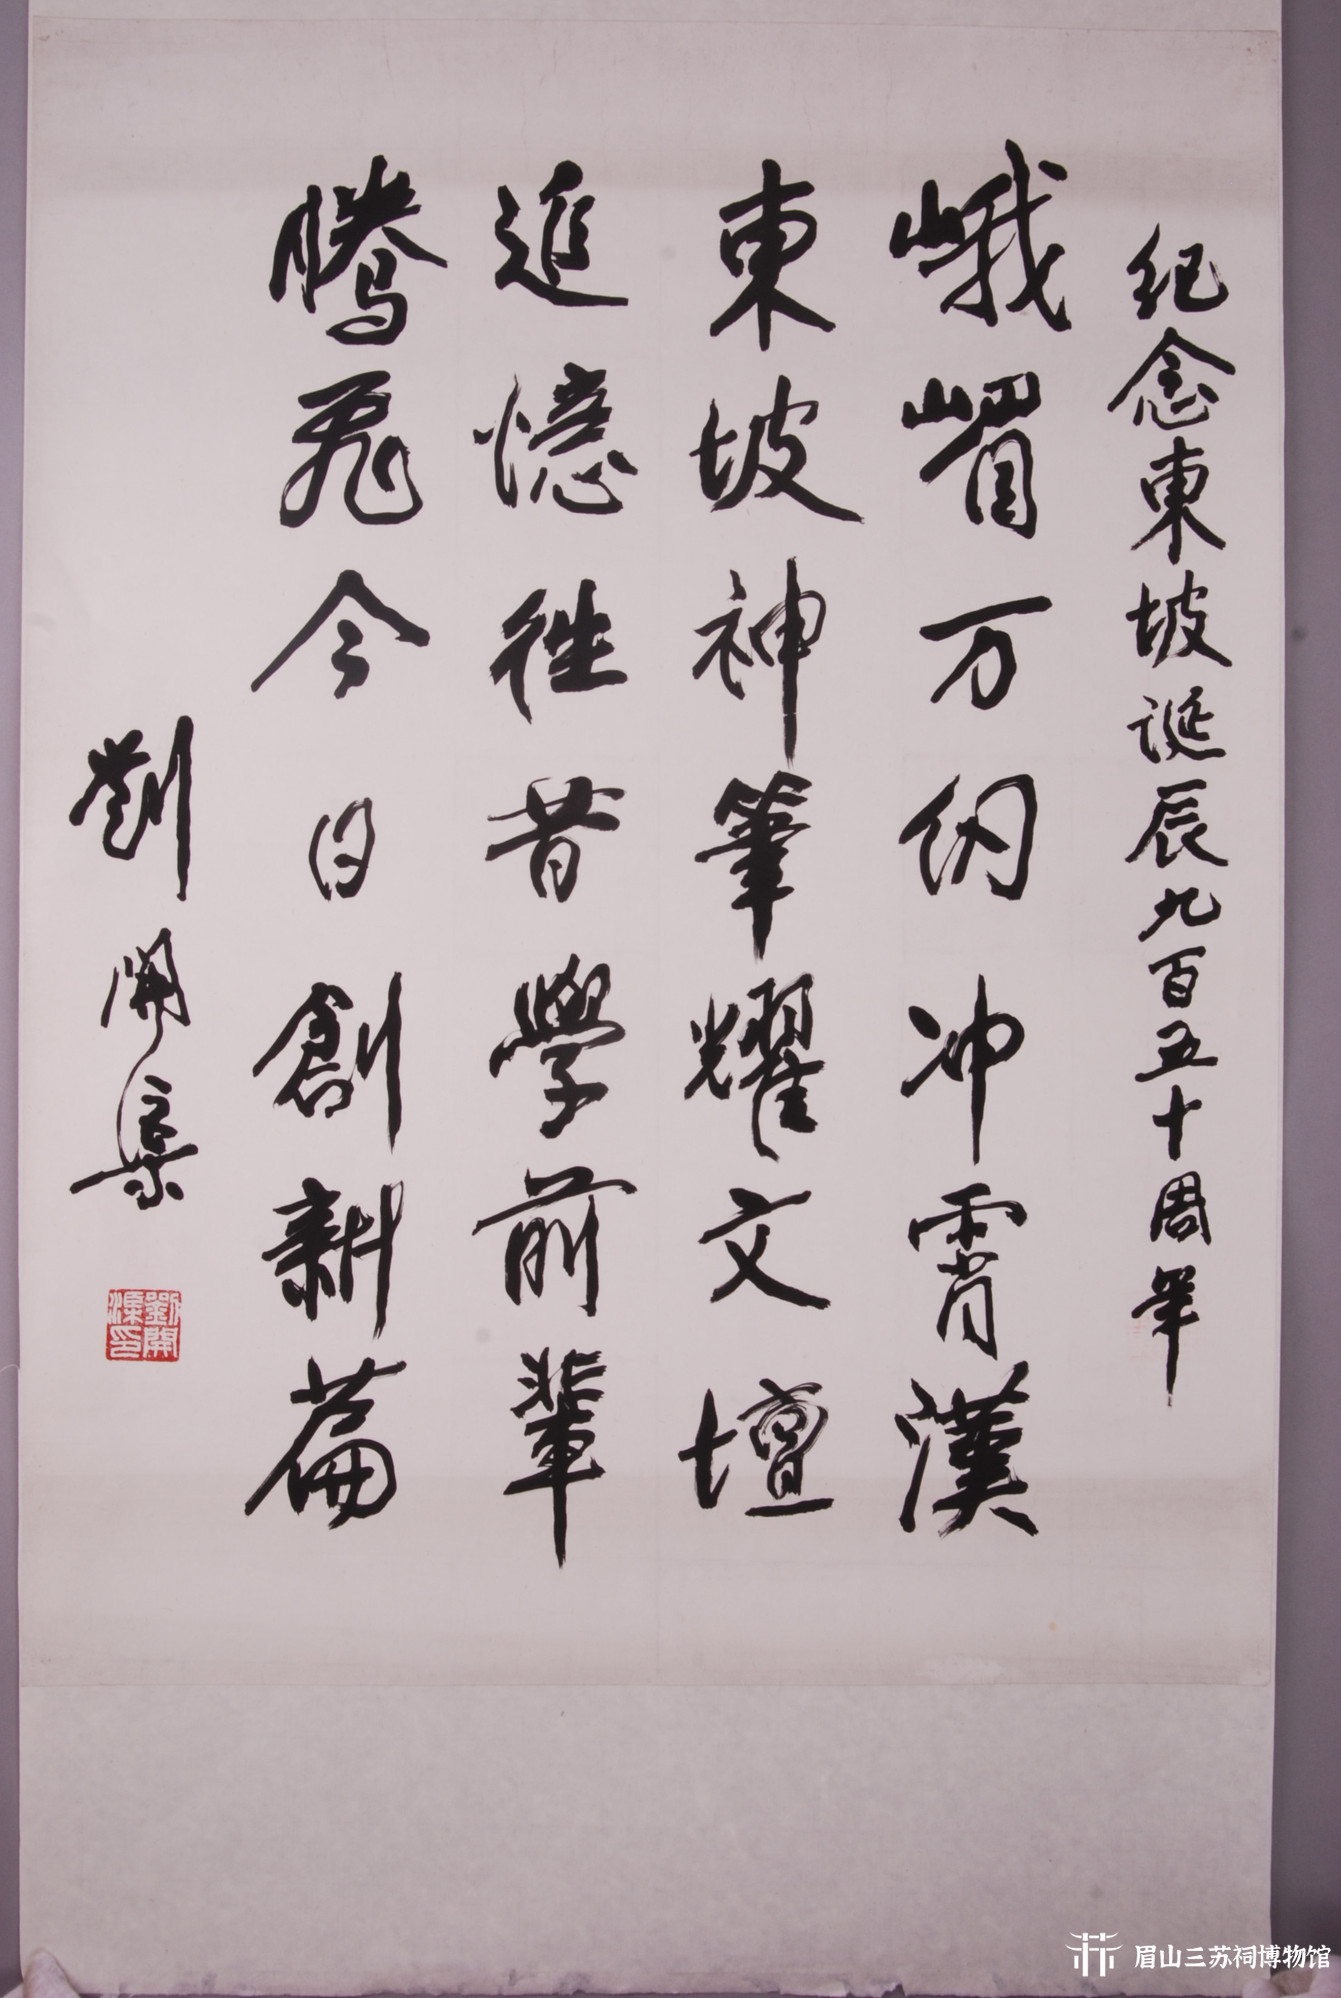 纪念東坡诞辰九百五十周年
峨嵋万仞冲霄漢
東坡神筆耀文壇
追憶往昔學前輩
腾飛今日創新篇
劉開渠
劉開渠印
眉山三苏祠博物馆